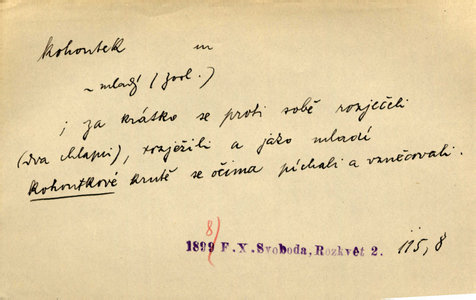 kohoutek m
~ mladý (zool.)
; za krátko se proti sobě rozječeli
(dva chlapci), rozježili a jako mladí
kohoutkové krutě se očima píchali a vzněcovali.
8/
1899 F. X. Svoboda, Rozkvět 2. 115,8